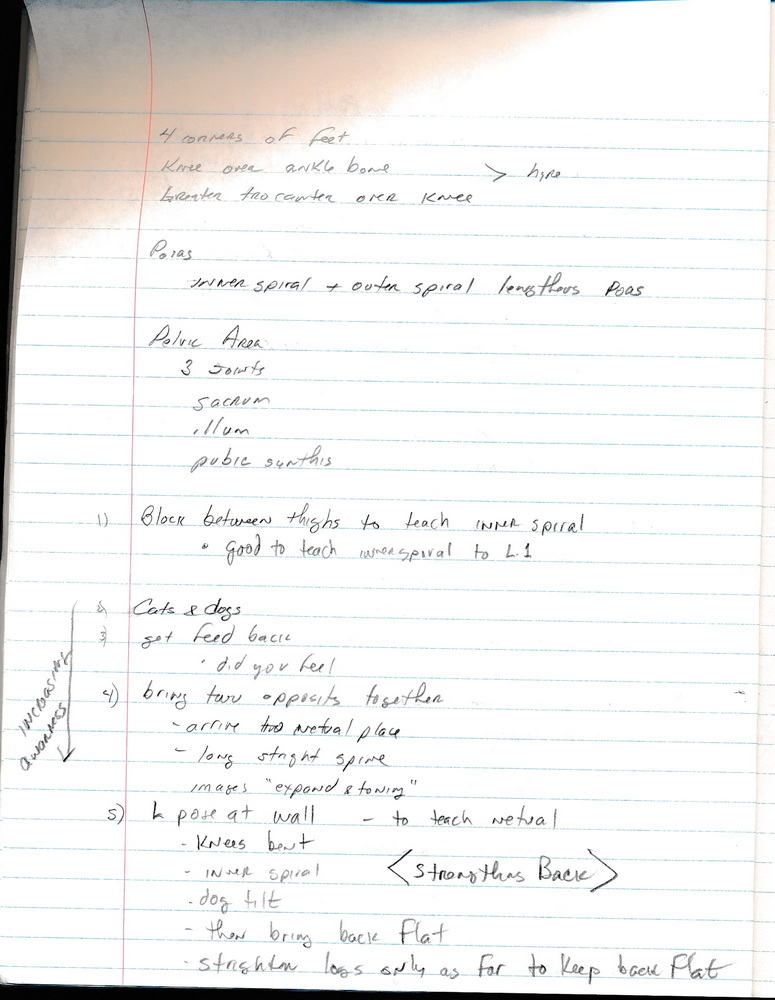 4 corners of feet
Knee over ankle bone > here
Greater trocanter over Knee
Psoas
inner spiral + outer spiral lengthens Psoas
Pelvic Area
3 Joints
sacrum
illum
pubic synthis
1) Block between thighs to teach inner spiral
• good to teach inner spiral to L.1
2) Cats & dogs
3) get feed back
• did you feel
4) bring two opposits together
- arrive two netual place
- long stright spine
images "expand & toning"
increasing awarness
5) L pose at wall - to teach netual
- Knees bent
- inner spiral <Strengthns Back>
- dog tilt
- then bring back Flat
- strighten legs only as far to keep back Flat